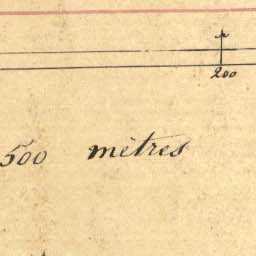 200
500 mètres